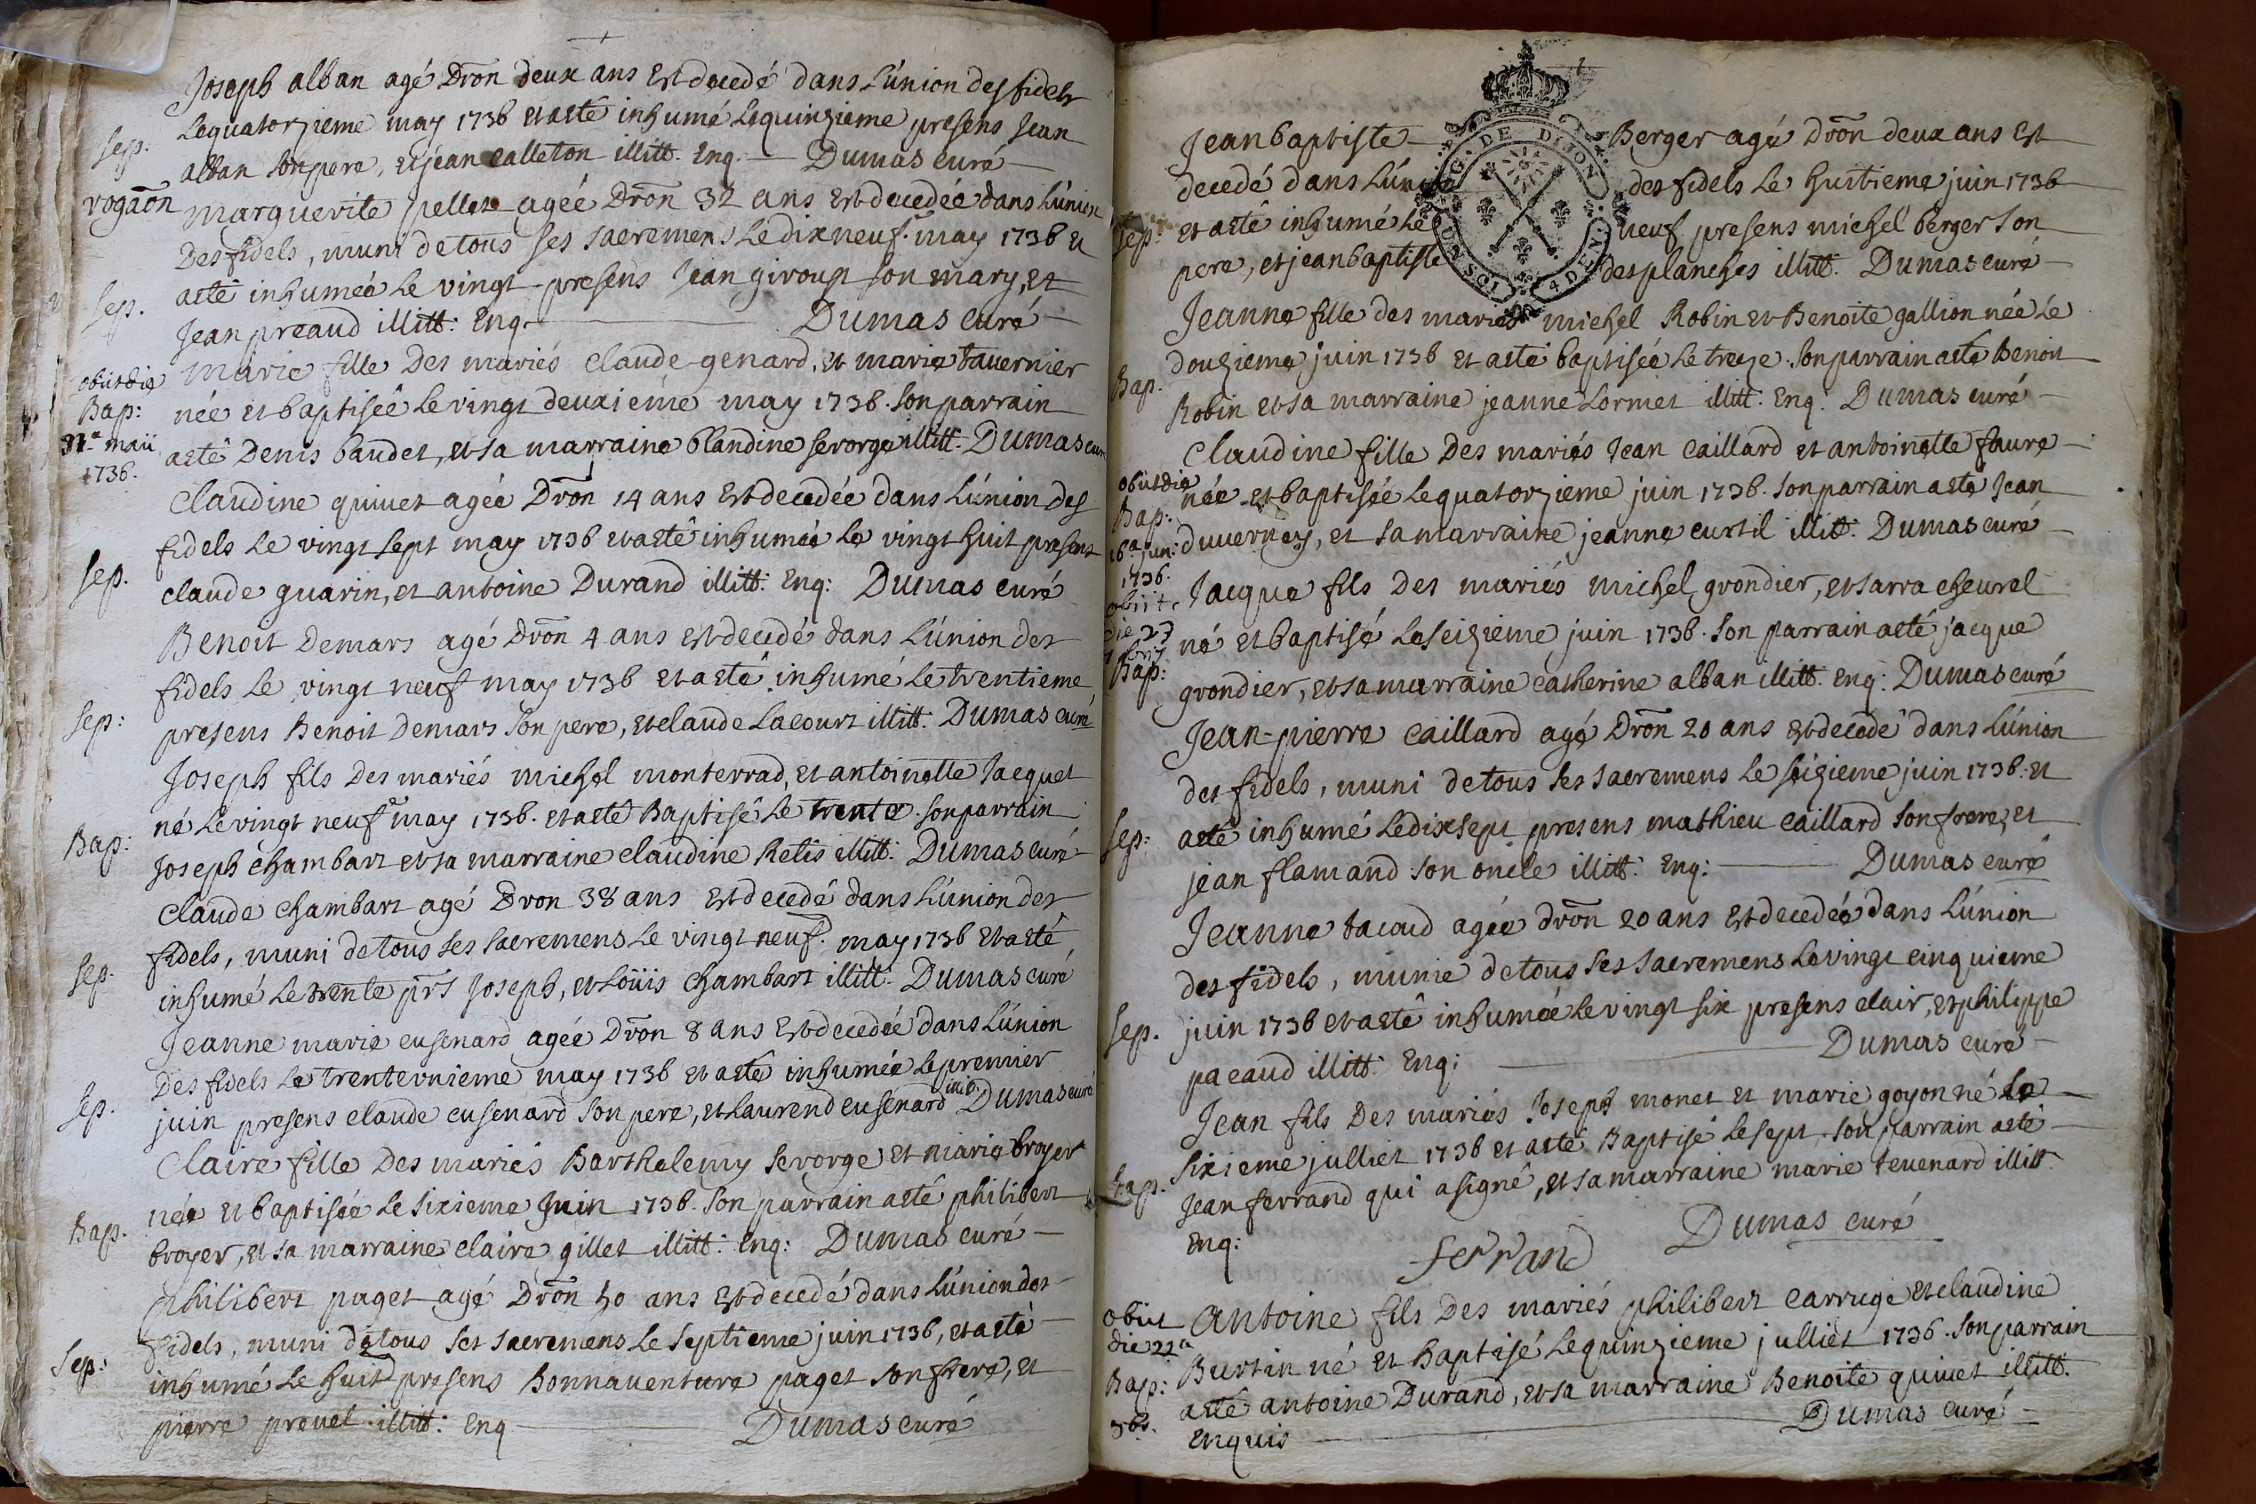 Joseph alban agé Dron deux ans Est decedé dans L'union des fidels
sep. Lequatorzieme may 1736 et a eté inhumé Lequinzieme presens Jean
alban son pere, et jean calleton illitt. Enq. Dumas curé
rogaôn Marguerite pellet agéé Dron 32 ans Est decedéé dans L'union
Des fidels, muni detous ses sacremens Ledixneuf may 1736 et
sep. aeté inhuméé Le vingt presens Jean giroust son mary, et
Jean preaud illitt: Enq. Dumas curé
obiit die Marie fille Des mariés claude genard, et marie tavernier
Bap: néé et baptiséé Levingt deuxiéme may 1736. Son parrain
31a maii aeté Denis baudet, et sa marraine blandine sevorge illitt. Dumas curé
1736.
Claudine quivet agéé Dron 14 ans Est decedéé dans L'union des
sep. fidels Le vingt sept may 1736 et aeté inhuméé Le vingt huit presens
claude guarin, et antoine Durand illitt: Enq: Dumas curé
Benoit Demars agé Dron 4 ans Est decedé dans L'union des
fidels Le vingt neuf may 1736 et aeté inhumé Le trentieme
sep: presens Benoit Demars son pere, et claude Lacourt illitt: Dumas curé
Joseph fils Des mariés michel monterrad, et antoinette Jacquet
né Levingt neuf may 1736. et aeté Baptisé Le trente. son parrain
Bap: Joseph chambart et sa marraine claudine Retis illitt: Dumas curé
Claude chambart agé Dron 38 ans Est decedé dans L'union des
sep. fidels, muni detous ses sacremens Le vingt neuf may 1736 et aeté
inhumé Le trente prs Joseph, et Loüis chambart illitt: Dumas curé
Jeanne marie eusenard agéé Dron 8 ans Est decedéé dans L'union
Des fidels Le trente unieme may 1736 et aeté inhuméé Le premier
sep. juin presens claude eusenard son pere, et Laurend eusenard illit. Dumas curé
Claire fille Des mariés Barthelemy sevorge et marie broyer
Bap. néé et baptiséé Le sixieme Juin 1736. Son parrain aeté philibert
broyer, et sa marraine claire gillet illitt: Enq: Dumas curé
philibert paget agé Dron 50 ans Est decedé dans L'union des
sep: fidels, muni detous ses sacremens Le septieme juin 1736, et aeté
inhumé Le huit presens Bonnaventure paget son frere, et
pierre prevel illitt: Enq Dumas curé
GEN. DE DIJON
UN SOL 4 DEN.
Jean baptiste Berger agé Dron deux ans Est
decedé dans L'union des fidels Le huitieme juin 1736
sep: et aeté inhumé Le neuf presens michel berger son
pere, et jean baptiste desplanches illitt. Dumas curé
Jeanne fille des mariés michel Robin et Benoite gallion néé Le
Bap. douzieme juin 1736 et aeté baptiséé Le treze. Son parrain aeté Benoit
Robin et sa marraine jeanne Lormet illitt: Enq: Dumas curé
Claudine fille Des mariés Jean Caillard et antoinette faure
obiit die néé et baptiséé Lequatorzieme juin 1736. Son parrain aeté Jean
Bap: duvernay, et sa marraine jeanne curtil illitt: Dumas curé
16a jun:
1736.
obiit Jacque fils Des mariés michel grondier, et sarra chevrel
die 27 né et baptisé Leseizieme juin 1736. Son parrain aeté jacque
Bap: grondier, et sa marraine catherine alban illitt: Enq: Dumas curé
Jean-pierre Caillard agé Dron 20 ans Est decedé dans L'union
des fidels, muni detous ses sacremens Le seizieme juin 1736: et
sep: aeté inhumé Ledixsept presens mathieu Caillard son frere, et
jean flamand son oncle illitt: Enq: Dumas curé
Jeanne bacoud agéé dron 20 ans Est decedéé dans L'union
des fidels, munie detous ses sacremens Levingt cinquieme
sep. juin 1736 et aeté inhuméé Levingt six presens clair, et philippe
pacaud illitt: Enq: Dumas curé
Jean fils Des mariés Joseph monet et marie goyon né Le
sixieme julliet 1736 et aeté Baptisé Lesept. son parrain aeté
Bap. Jean ferrand qui a signé, et sa marraine marie tevenard illitt.
Enq: ferrand Dumas curé
obiit Antoine fils Des mariés philibert Carruge et claudine
die 22a Burtin né et baptisé Lequinzieme julliet 1736. Son parrain
Bap: aeté antoine Durand, et sa marraine Benoite quivet illitt.
Enquis Dumas curé